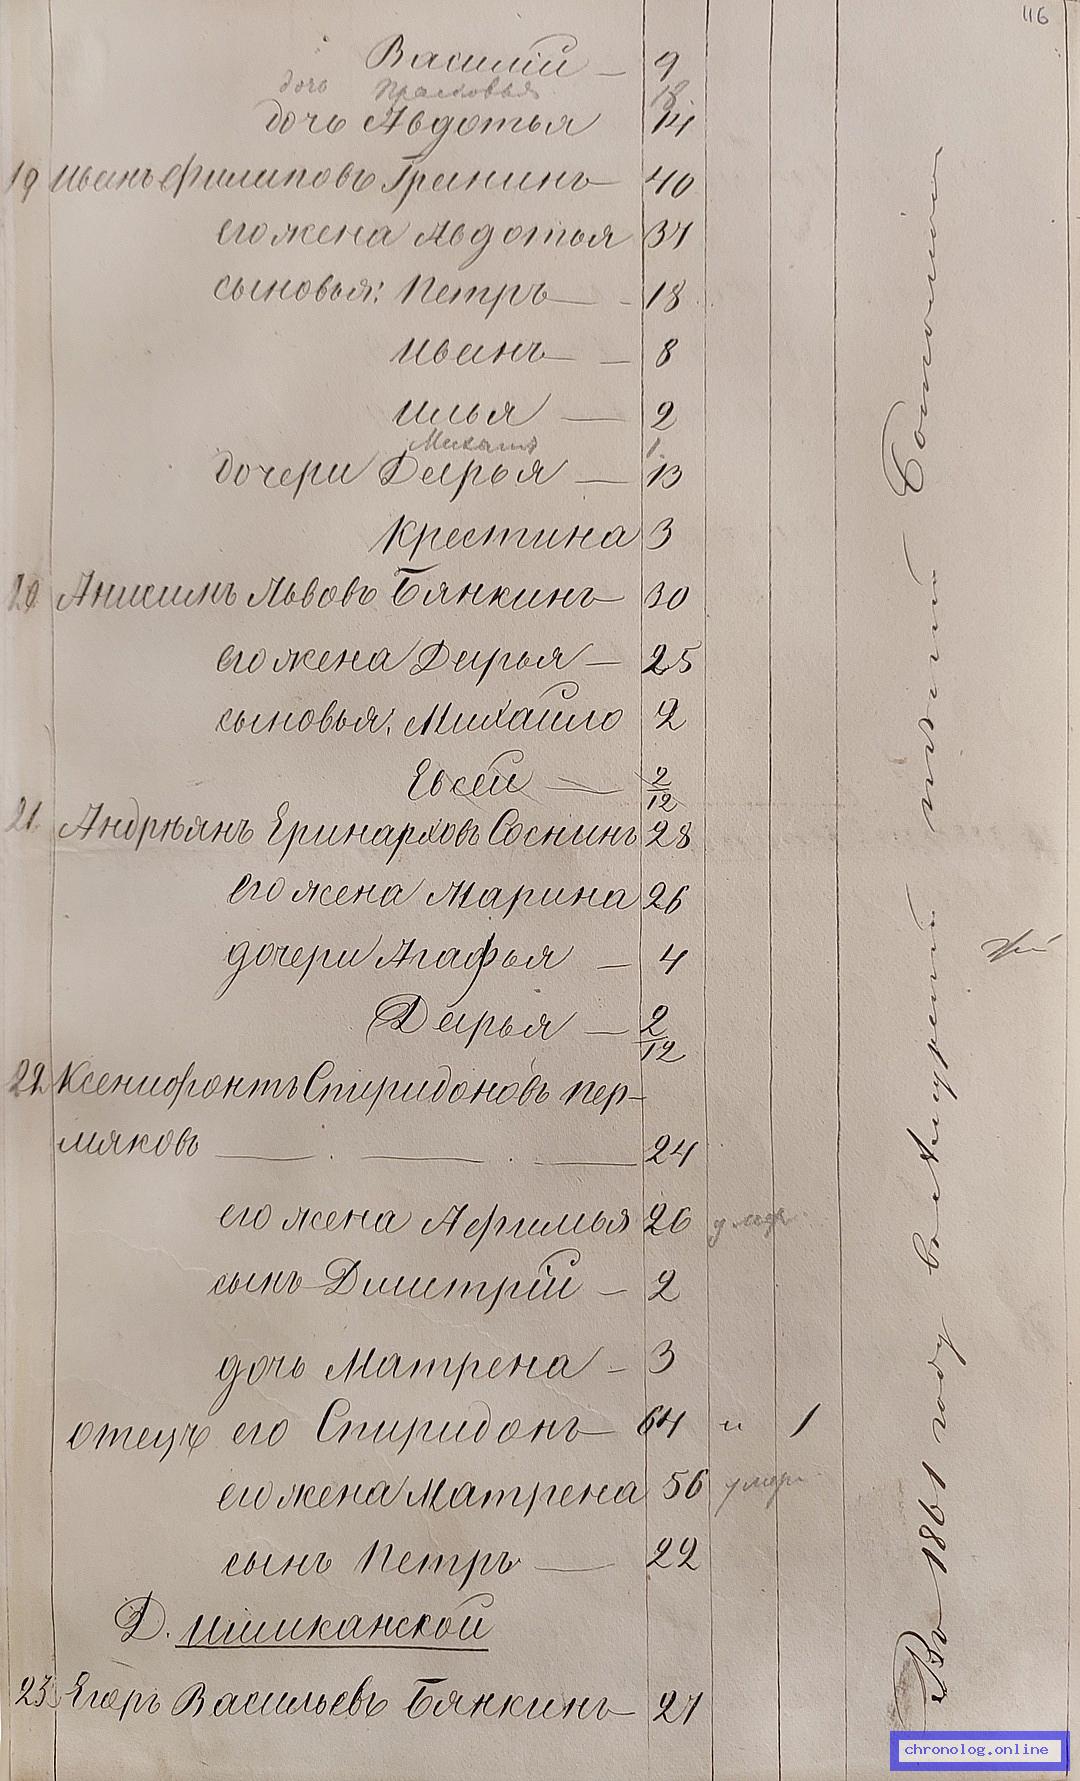 116
Василій — 9
дочь Прасковья 18
дочь Авдотья 14
19 Иванъ Филиповъ Гранинъ — 40
его жена Авдотья 37
сыновья: Петръ — 18
Иванъ — 8
Илья — 2
Михаилъ 1
дочери Дарья — 13
Крестина 3
20 Анисимъ Львовъ Бянкинъ — 30
его жена Дарья — 25
сыновья: Михайло 2
Евсей — 2/12
21. Андрѣянъ Еринарховъ Соснинъ 28
его жена Марина 26
дочери Агафья — 4
Дарья — 2/12
22 Ксенифонтъ Спиридоновъ Пер-
мяковъ — 24
его жена Афимья 26
сынъ Дмитрій — 2
дочь Матрена — 3
отецъ его Спиридонъ — 64 и 1
его жена Матрена 56 умер
сынъ Петръ — 22
Д. Ишиканской
23. Егоръ Васильевъ Бянкинъ — 27
Въ 1861 году
chronolog.online